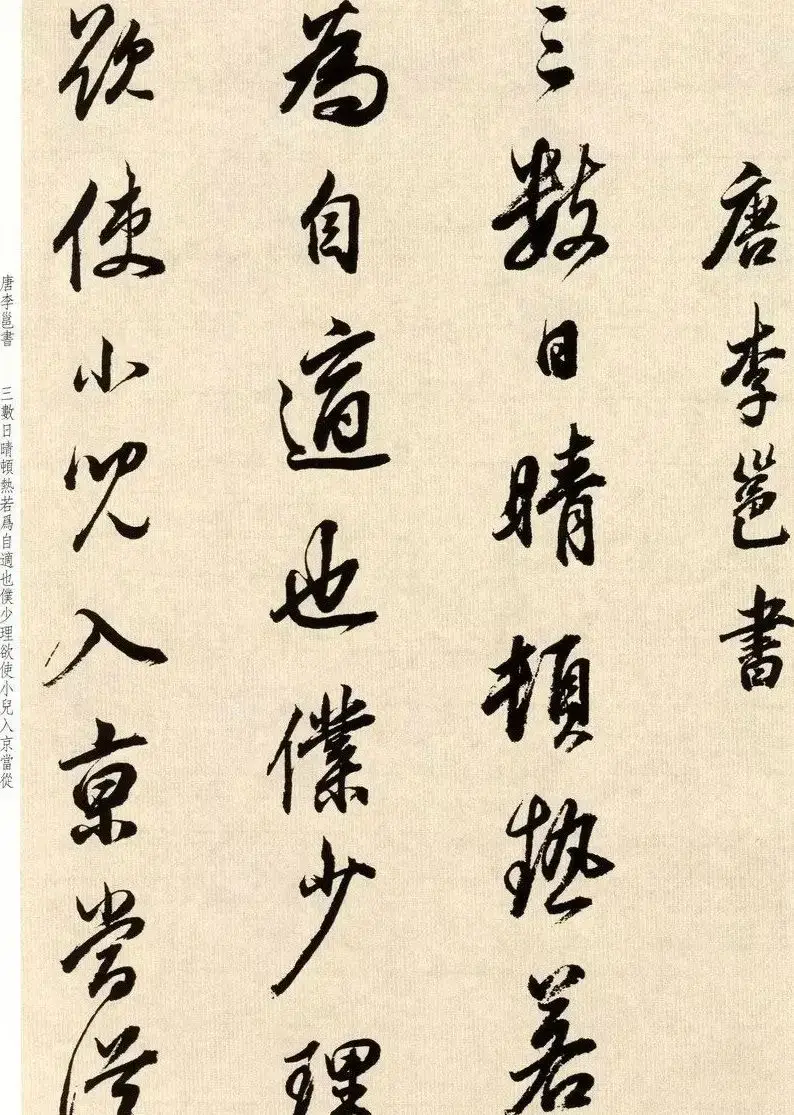 唐李邕書
三數日晴頓熱若
為自適也僕少理
欲使小兒入京當從
唐李邕書　三數日晴頓熱若爲自適也僕少理欲使小兒入京當從